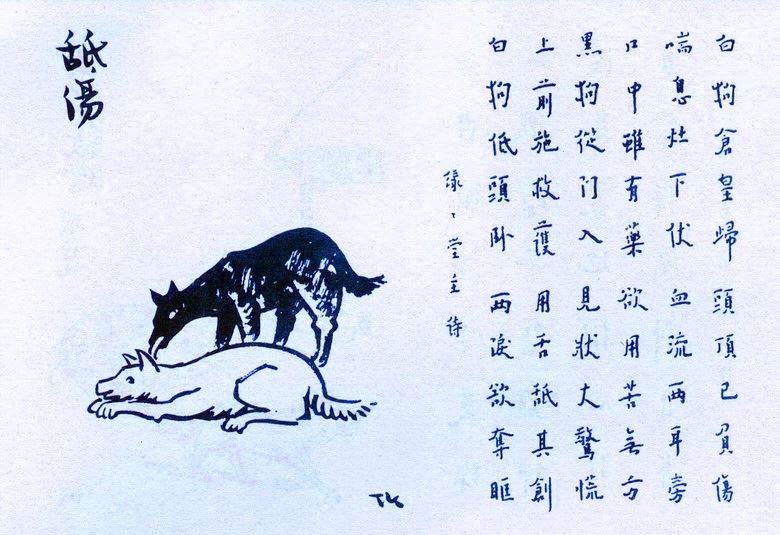 白狗倉皇歸 頭頂已負傷
喘息灶下伏 血流兩耳旁
口中雖有藥 欲用苦無方
黑狗從門入 見狀大驚慌
上前施救護 用舌舐其創
白狗低頭卧 兩淚欲奪眶
緣〻堂主詩
舐傷
TK